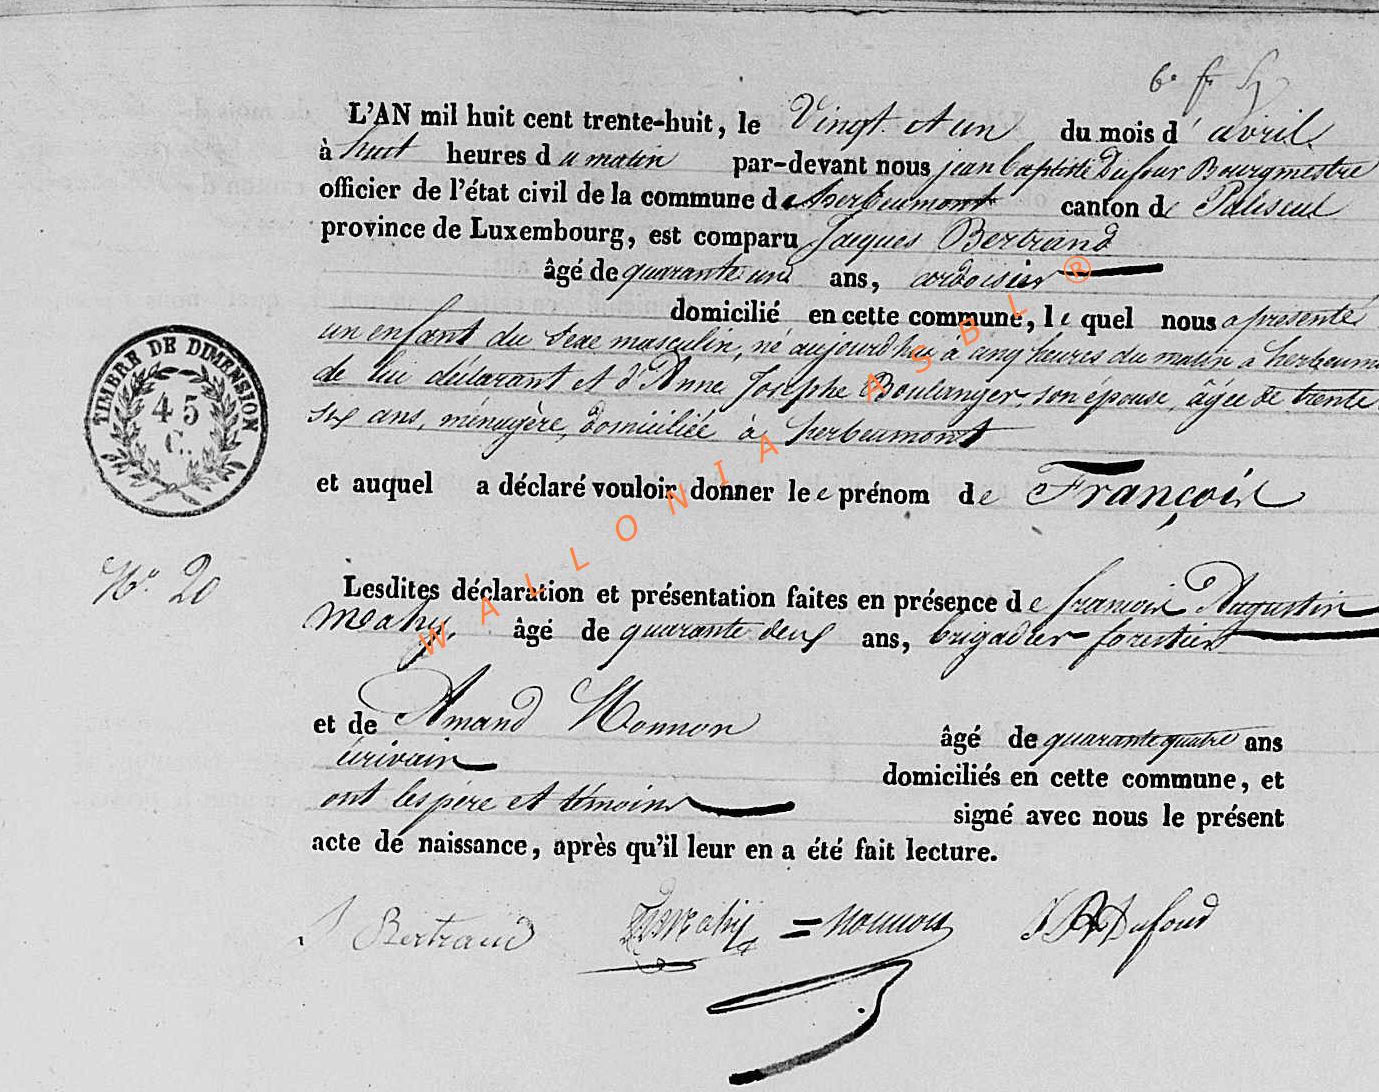 L'AN mil huit cent trente-huit, le Vingt et un du mois d'avril
à huit heures du matin par-devant nous jean baptiste Dufour Bourgmestre
officier de l'état civil de la commune de herbeumont canton de Paliseul
province de Luxembourg, est comparu Jacques Bertrand
âgé de quarante un ans, ardoisier
domicilié en cette commune, le quel nous a présenté
un enfant du sexe masculin, né aujourd'hui à cinq heures du matin a herbeum
de lui déclarant et d'Anne Josephe Boulanger, son épouse, âgée de trente
six ans, ménagère, domiciliée à herbeumont
et auquel a déclaré vouloir donner le prénom de François
TIMBRE DE DIMENSION
45
C.
No. 20
Lesdites déclaration et présentation faites en présence de françois Augustin
Mahy, âgé de quarante deux ans, brigadier forestier
et de Amand Monnon âgé de quarante quatre ans
écrivain
domiciliés en cette commune, et
ont les père et témoins signé avec nous le présent
acte de naissance, après qu'il leur en a été fait lecture.
J Bertrand Mahy Monnon JB Dufour
WALLONIA ASBL ®